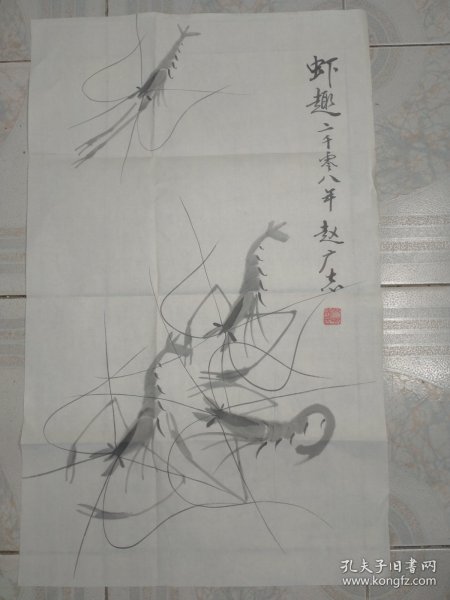 虾趣 二千零八年 赵广志
孔夫子旧书网
www.kongfz.com